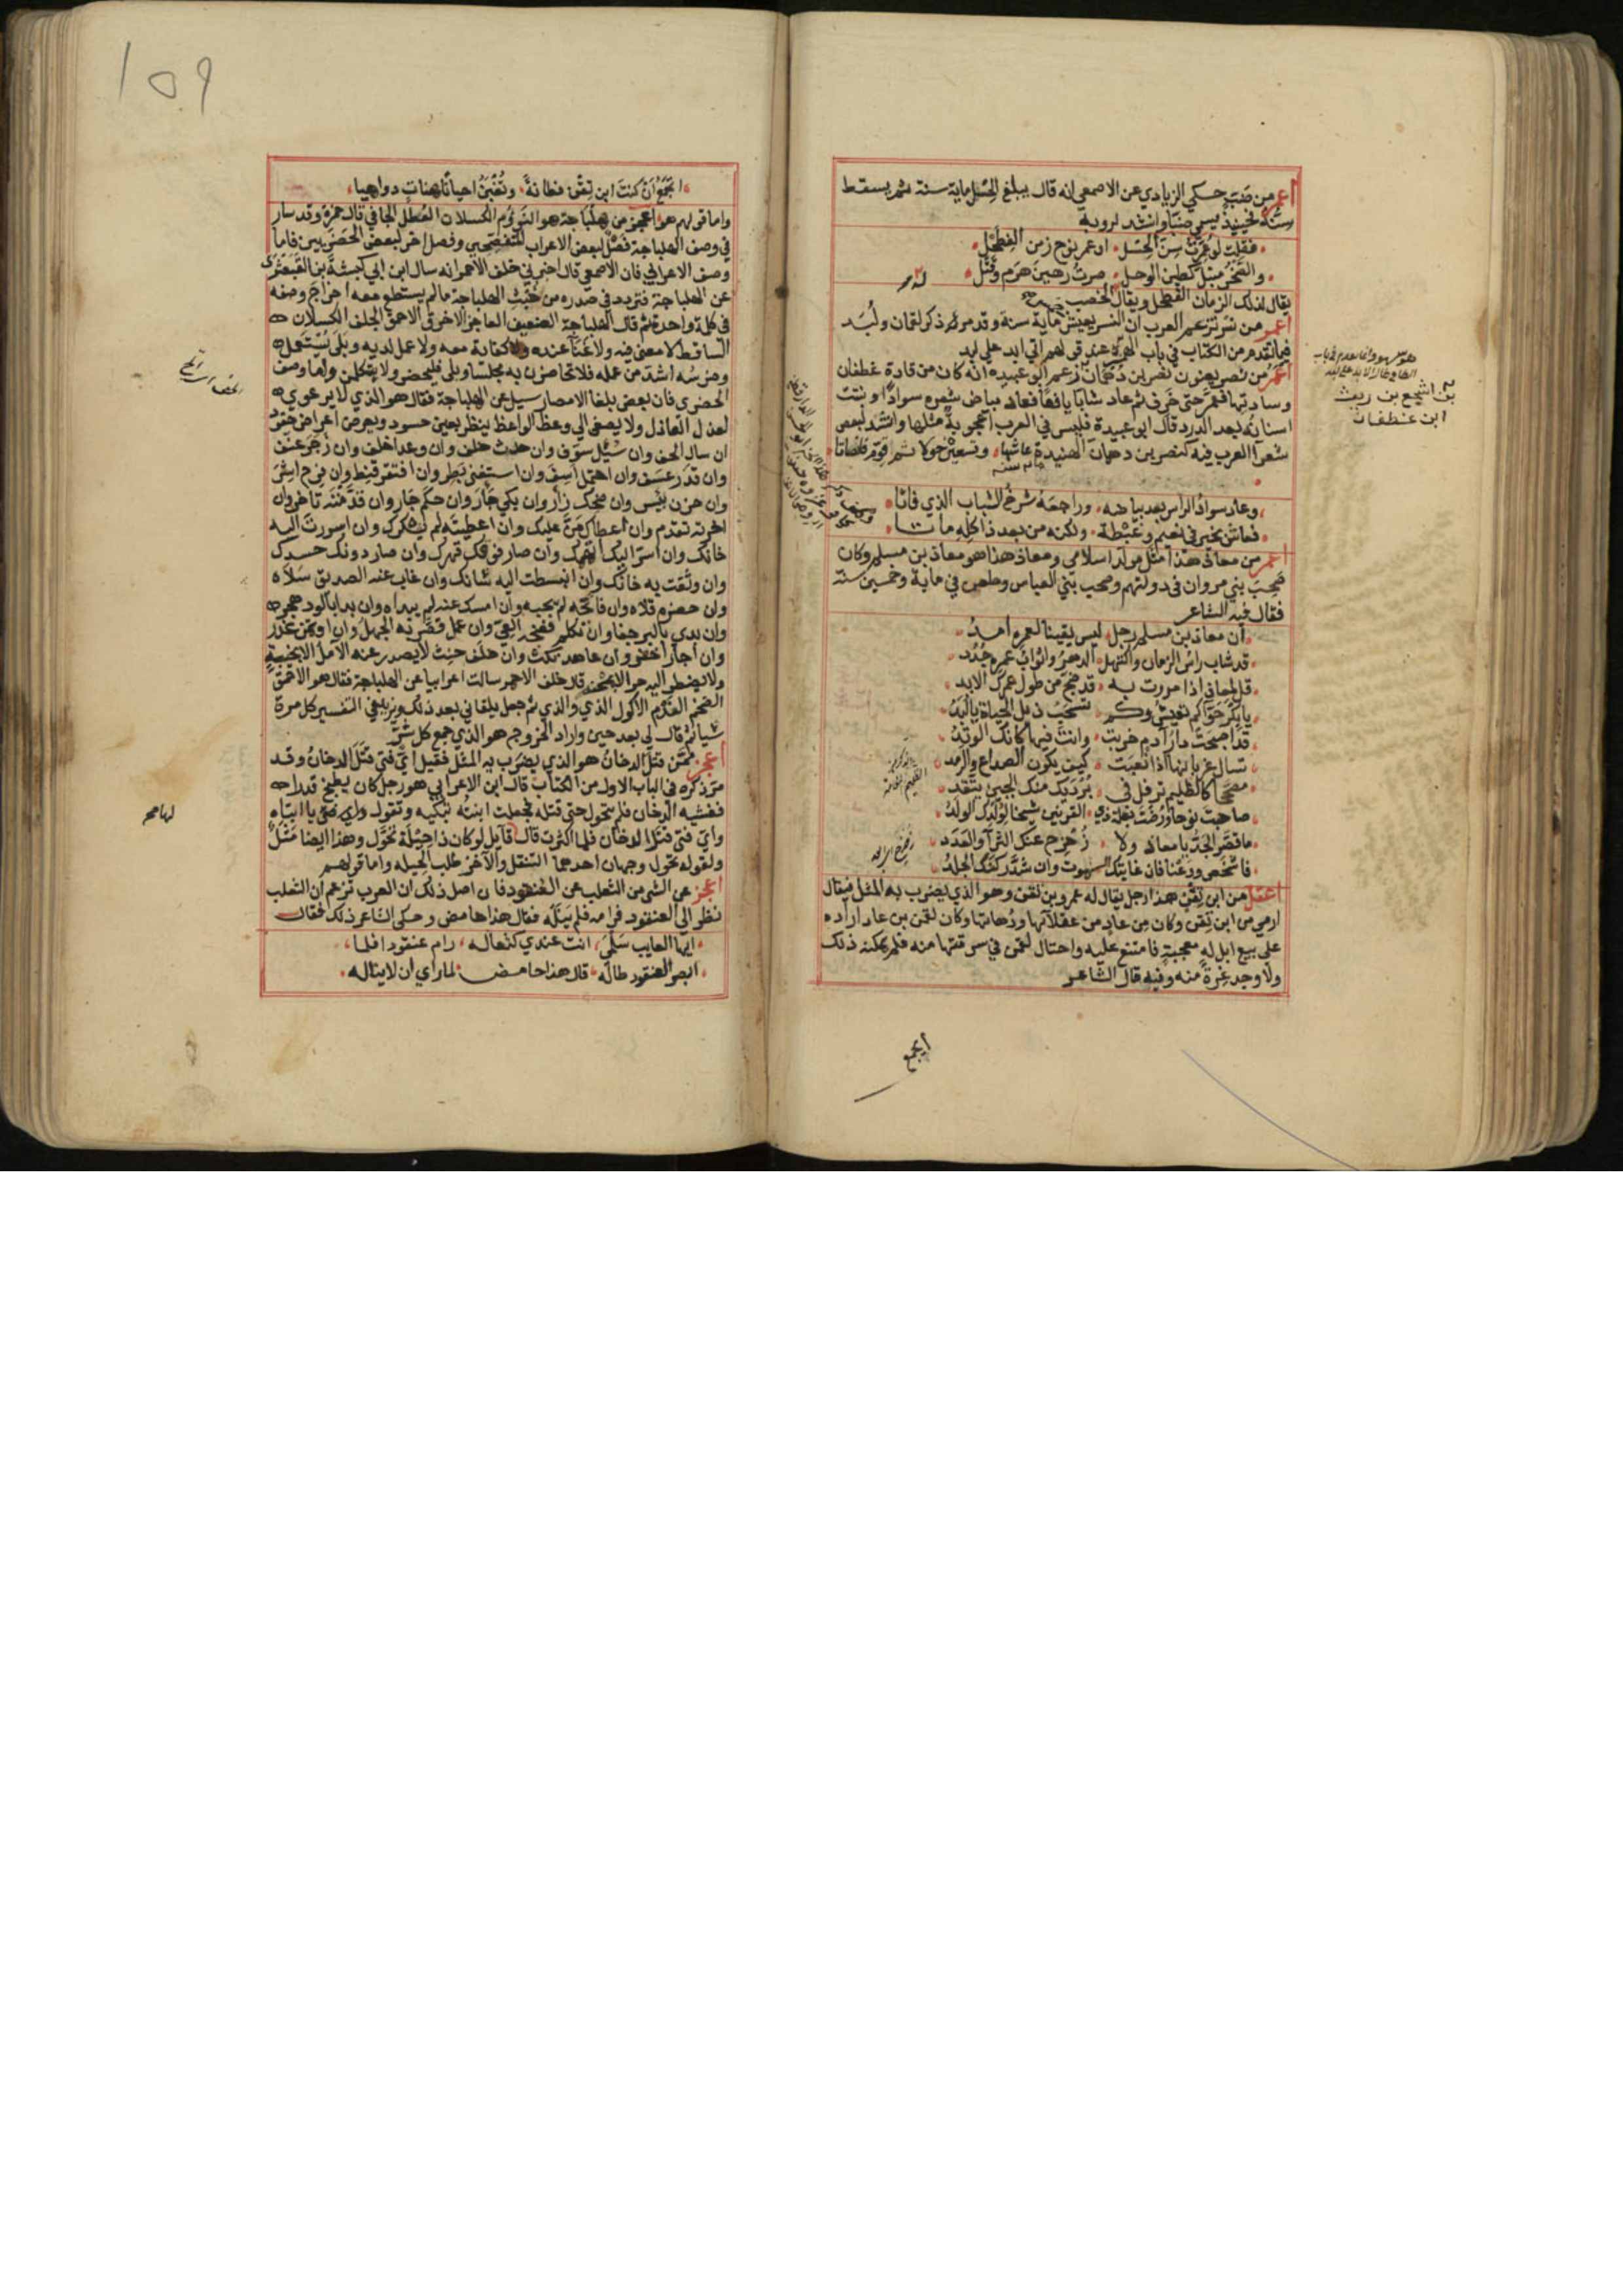 أعمر من ضب حكى الزيادي عن الاصمعي انه قال يبلغ الحسل ماية سنة ثم يسقط
سنه فحينئذ يسمى ضبا وانشد لروبة
فقلت لو عمرت سن الحسل او عمر نوح زمن الفطحل
والصخر مبتل كطين الوحل صرت رهين هرم وقتل
يقال لذلك الزمان الفطحل ويقال الخصب
أعمر من نسر تزعم العرب ان النسر يعيش خماية سنة وقد مر ذكر لقمان ولبد
فيما تقدم من الكتاب في باب الهمزة عند قولهم اتى ابد على لبد
أعمر من نصر يعنون نصر بن دهمان زعم ابو عبيدة انه كان من قادة غطفان
وسادتها فعمر حتى خرف ثم عاد شابا يافعا فعاد بياض شعره سوادا ونبتت
اسنانه بعد الدرد قال ابو عبيدة فليس في العرب اعجوبة مثلها وانشد لبعض
شعرا العرب فيه كنصر بن دهمان الهنيدة عاشها وتسعين حولا ثم قوم فانصاتا
وعاد سواد الراس بعد بياضه وراجعه شرخ الشباب الذي فاتا
فعاش بخير في نعيم وغبطة ولكنه من بعد ذا كله ماتا
أعمر من معاذ هذا مثل مولد اسلامي ومعاذ هذا هو معاذ بن مسلم وكان
صحب بني مروان في دولتهم وصحب بني العباس وطعن في ماية وخمسين سنة
فقال فيه الشاعر
ان معاذ بن مسلم رجل ليس يقينا لعمره امد
قد شاب راس الزمان واكتهل الدهر واثواب عمره جدد
قل لمعاذ اذا مررت به قد ضج من طول عمرك الابد
يا بكر حوا كم تعيش وكم تسحب ذيل الحياة يا لبد
قد اصبحت دار آدم خربت وانت فيها كانك الوتد
تسال غربانها اذا نعبت كيف يكون الصداع والرمد
مصححا كالظليم ترفل في برديك منك الجبين يتقد
صاحبت نوحا ورضت بغلة ذي القرنين شيخا لولدك الولد
ما قصر الجد يا معاذ ولا زحزح عنك الثرا والعدد
فاشخص ودعنا فان غايتك الموت وان شد ركنك الجلد
أعقل من ابن تقن هذا رجل يقال له عمرو بن تقن وهو الذي يضرب به المثل فيقال
ارمى من ابن تقن وكان من عاد من عقلائها ودهاتها وكان لقمن بن عاد اراده
على بيع ابل له معجبة فامتنع عليه واحتال لقمن في سرقتها منه فلم يمكنه ذلك
ولا وجد غرة منه وفيه قال الشاعر
بن اشجع بن ريث
ابن غطفان
أتجمع
١٥٩
اتجمع ان كنت ابن تقن فطانة وتغبن احيانا هنات دواهيا
واما قولهم هو اعجز من هلباجة هو النووم الكسلان العطل الجافي قال حمزة وقد سار
في وصف الهلباجة فصل لبعض الاعراب المتفصحين وفصل اخر لبعض الحضريين فاما
وصف الاعرابي فان الاصمعي قال اخبرني خلف الاحمر انه سال ابن ابي كبشة بن القبعثرى
عن الهلباجة فتردد في صدره من خبث الهلباجة ما لم يستطع معه اخراج وصفه
في كلمة واحدة ثم قال الهلباجة الضعيف العاجز الاخرق الاحمق الجلف الكسلان
الساقط لا معنى فيه ولا غنا عنده ولا كفاية معه ولا عمل لديه وبلى يستعمل
وضرسه اشد من عمله فلا تحاضرن به مجلسا وبلى فليحضر ولا يتكلمن واما وصف
الحضري فان بعض بلغا الامصار سيل عن الهلباجة فقال هو الذي لا يرعوي
لعذل العاذل ولا يصغي الى وعظ الواعظ ينظر بعين حسود ويعرض اعراض حقود
ان سال الحف وان سئل سوف وان حدث حلف وان وعد اخلف وان زجر عنف
وان قدر عسف وان احتمل اسف وان استغنى بطر وان افتقر قنط وان فرح اشر
وان حزن يئس وان ضحك زأر وان بكى جأر وان حكم جار وان قدمته تاخر وان
اخرته تقدم وان اعطاك من عليك وان اعطيته لم يشكرك وان اسررت اليه
خانك وان اسر اليك اتهمك وان صار فوقك قهرك وان صار دونك حسدك
وان وثقت به خانك وان انبسطت اليه شانك وان غاب عنه الصديق سلاه
وان حضره قلاه وان فاتحه لم يجبه وان امسك عنه لم يبداه وان بدا بالود هجره
وان بدي بالبر جفا وان تكلم فضحه العي وان عمل قصر به الجهل وان اوتمن غدر
وان اجار اخفر وان عاهد نكث وان حلف حنث لا يصدر عنه الآمل الا بخيبة
ولا يضطر اليه حر الا بمحنة قال خلف الاحمر سالت اعرابيا عن الهلباجة فقال هو الاحمق
الضخم الفدم الاكول الذي والذي ثم جعل يلقاني بعد ذلك ويزيدني في التفسير كل مرة
شيا ثم قال لي بعد حين واراد الخروج هو الذي جمع كل شر
أعجز ممن قتل الدخان هو الذي يضرب به المثل فقيل اي فتى قتل الدخان وقد
مر ذكره في الباب الاول من الكتاب قال ابن الاعرابي هو رجل كان يطبخ قدرا
فغشيه الدخان فلم يتحول حتى قتله فجعلت ابنته تبكيه وتقول يا ابتاه
واي فتى قتل الدخان فلما اكثرت قال قايل لو كان ذا حيلة تحول وهذا ايضا مثل
ولقوله تحول وجهان احدهما التنقل والآخر طلب الحيلة واما قولهم
أعجز عن الشي من الثعلب عن العنقود فان اصل ذلك ان العرب تزعم ان الثعلب
نظر الى العنقود فرامه فلم ينله فقال هذا حامض وحكى الشاعر ذلك فقال
ايها العايب سلمى انت عندي كثعاله رام عنقودا فلما
ابصر العنقود طاله قال هذا حامض لما راى ان لا يناله